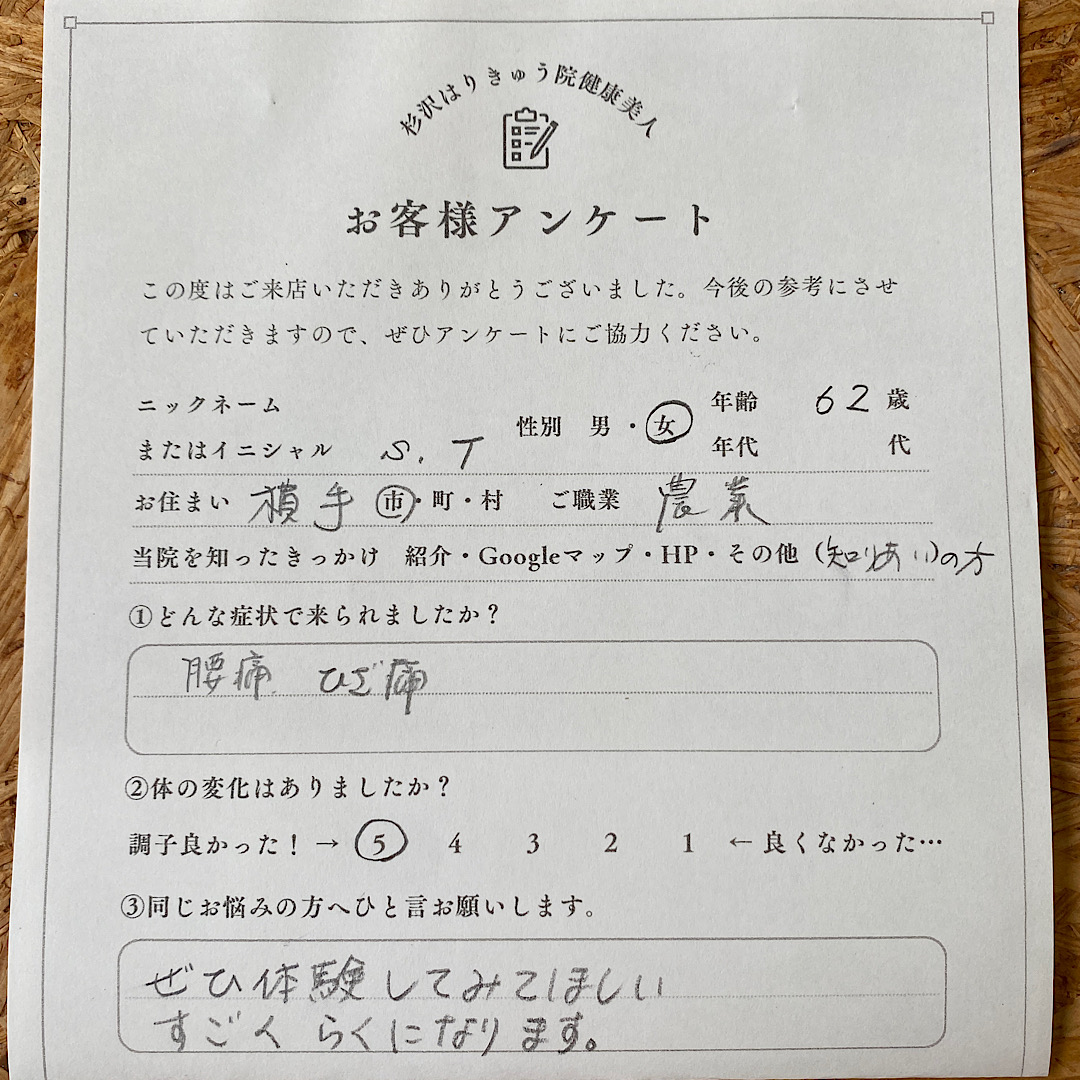 杉沢はりきゅう院健康美人
お客様アンケート
この度はご来店いただきありがとうございました。今後の参考にさせ
ていただきますので、ぜひアンケートにご協力ください。
ニックネーム
またはイニシャル S.T 性別 男・女 年齢 62 歳
年代 代
お住まい 横手 市・町・村 ご職業 農業
当院を知ったきっかけ 紹介・Googleマップ・HP・その他(知りあい)の方
①どんな症状で来られましたか?
腰痛 ひざ痛
②体の変化はありましたか?
調子良かった!→ 5 4 3 2 1 ←良くなかった…
③同じお悩みの方へひと言お願いします。
ぜひ体験してみてほしい
すごく らくになります。